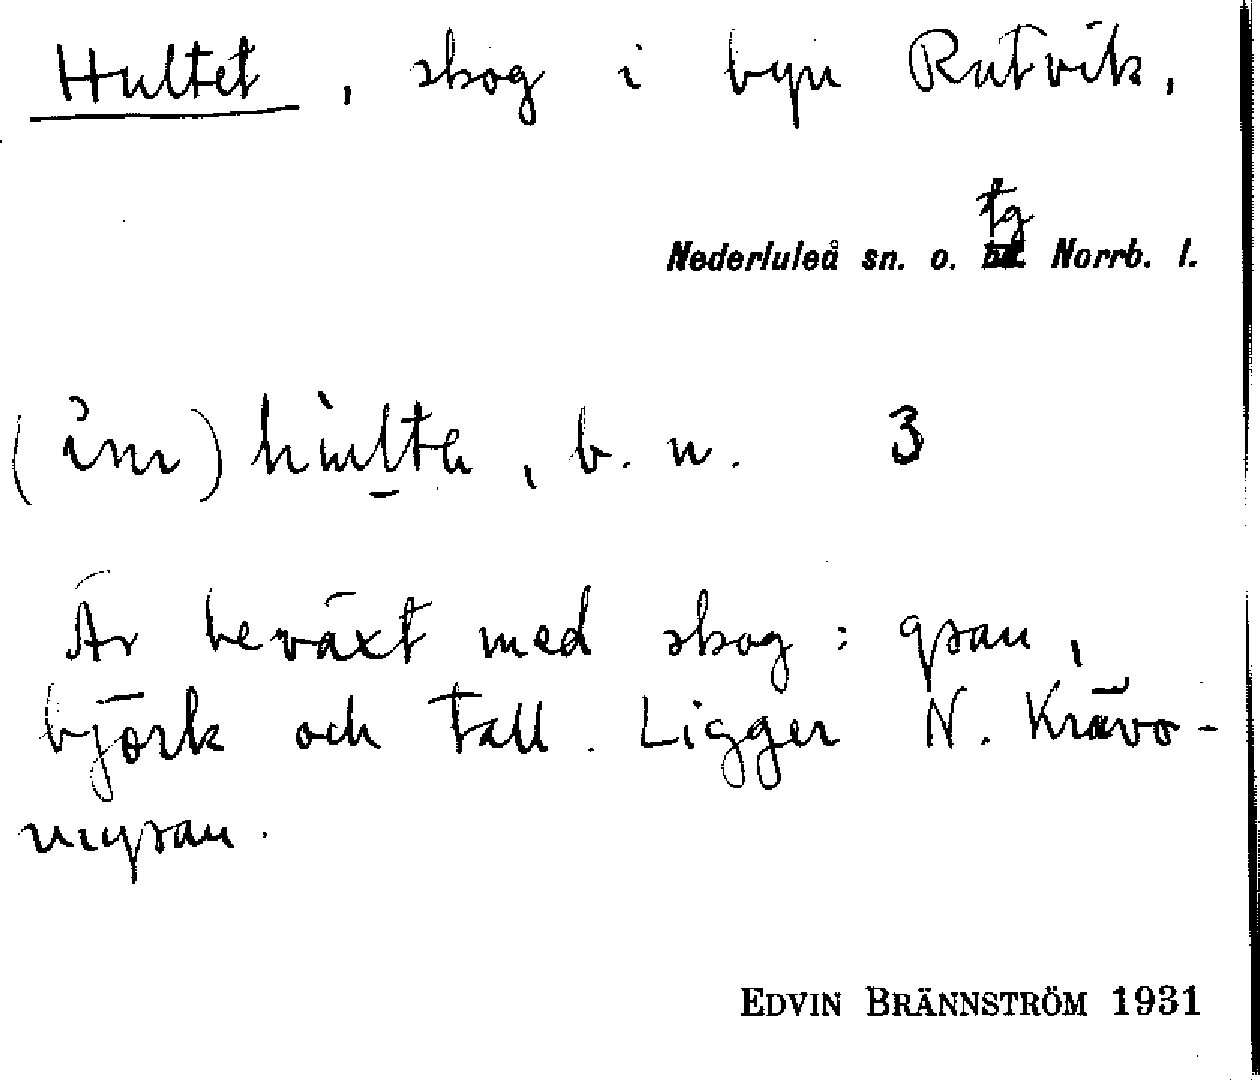 Hultet, skog i byn Rutvik,
Nederluleå sn. o. tg Norrb. l.
(inn) hùlte, b. n. 3
Är beväxt med skog: gran,
björk och tall. Ligger N. Krävo-
myran.
EDVIN BRÄNNSTRÖM 1931